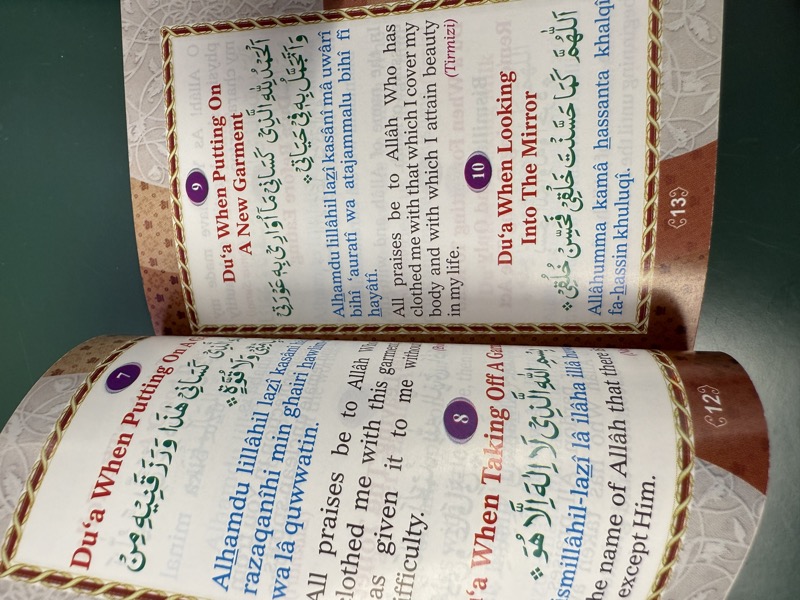 7
Du‘a When Putting On A
كَسَانِيْ هٰذَا وَرَزَقَنِيْهِ مِنْ
وَلَا قُوَّةٍ
Alhamdu lillâhil lazî kasânî
razaqanîhi min ghairi hawlin
wa lâ quwwatin.
All praises be to Allâh Who
clothed me with this garment
as given it to me without
ifficulty.
8
u‘a When Taking Off A Gar
بِسْمِ اللهِ الَّذِيْ لَا اِلٰهَ اِلَّا هُوَ
ismillâhil-lazî lâ ilâha illâ hu
he name of Allâh that there i
except Him.
12
9
Du‘a When Putting On
A New Garment
اَلْحَمْدُ لِلّٰهِ الَّذِيْ كَسَانِيْ مَا اُوَارِيْ بِهٖ عَوْرَتِيْ
وَاَتَجَمَّلُ بِهٖ فِيْ حَيَاتِيْ
Alhamdu lillâhil lazî kasânî mâ uwârî
bihî ‘auratî wa atajammalu bihî fî
hayâtî.
All praises be to Allâh Who has
clothed me with that which I cover my
body and with which I attain beauty
in my life.
(Tirmizi)
10
Du‘a When Looking
Into The Mirror
اَللّٰهُمَّ كَمَا حَسَّنْتَ خَلْقِيْ فَحَسِّنْ خُلُقِيْ
Allâhumma kamâ hassanta khalqî
fa-hassin khuluqî.
13